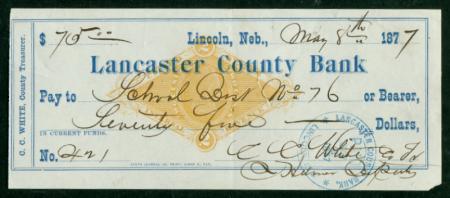 $ 75.00 Lincoln, Neb., May 8th 1877
Lancaster County Bank
Pay to School Dist No 76 or Bearer,
Seventy five Dollars,
IN CURRENT FUNDS.
No. 421 C C White Co Tr
Deputy
C. C. WHITE, County Treasurer.
LANCASTER COUNTY BANK